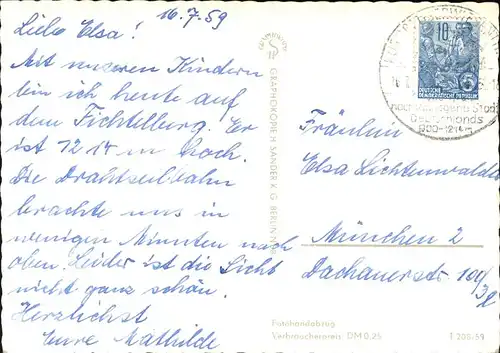 16.7.59
Liebe Elsa!
Mit unseren Kindern
bin ich heute auf
dem Fichtelberg. Er
ist 1214 m hoch.
Die Drahtseilbahn
brachte uns in
wenigen Minuten nach
oben. Leider ist die Sicht
nicht ganz schön.
Herzlichst
Eure Mathilde
GRAPHOKOPIE H. SANDER K. G. BERLIN
10
5
DEUTSCHE
DEMOKRATISCHE REPUBLIK
höchstgelegene Stadt
Deutschlands
900-1214m
Fräulein
Elsa Lichtenwalder
München 2
Dachauerstr. 104/
3 l
Echthandabzug
Verbraucherpreis: DM 0,25
I 208/59